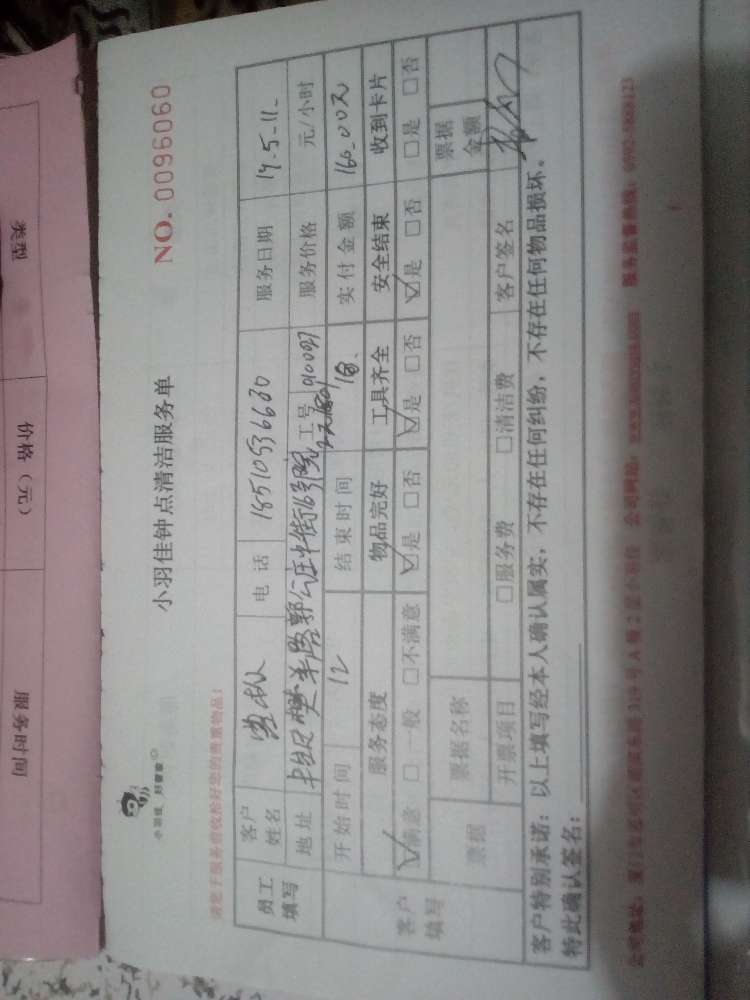 小羽佳 好管家
小羽佳钟点清洁服务单
NO. 0096060
员工填写
客户姓名
电 话 18510536630
服务日期 19-5-11
地址 丰台区樊羊路郭公庄中街16号院
工号 010027
服务价格 元/小时
开始时间 12
结束时间 18
实付金额 160.00元
客户填写
服务态度 物品完好 工具齐全 安全结束 收到卡片
☑满意 □一般 □不满意 ☑是 □否 ☑是 □否 ☑是 □否 □是 □否
票据 票据名称 票据金额
开票项目 □服务费 □清洁费 客户签名
客户特别承诺：以上填写经本人确认属实，不存在任何纠纷，不存在任何物品损坏。
特此确认签名：
类型
价格（元）
服务时间